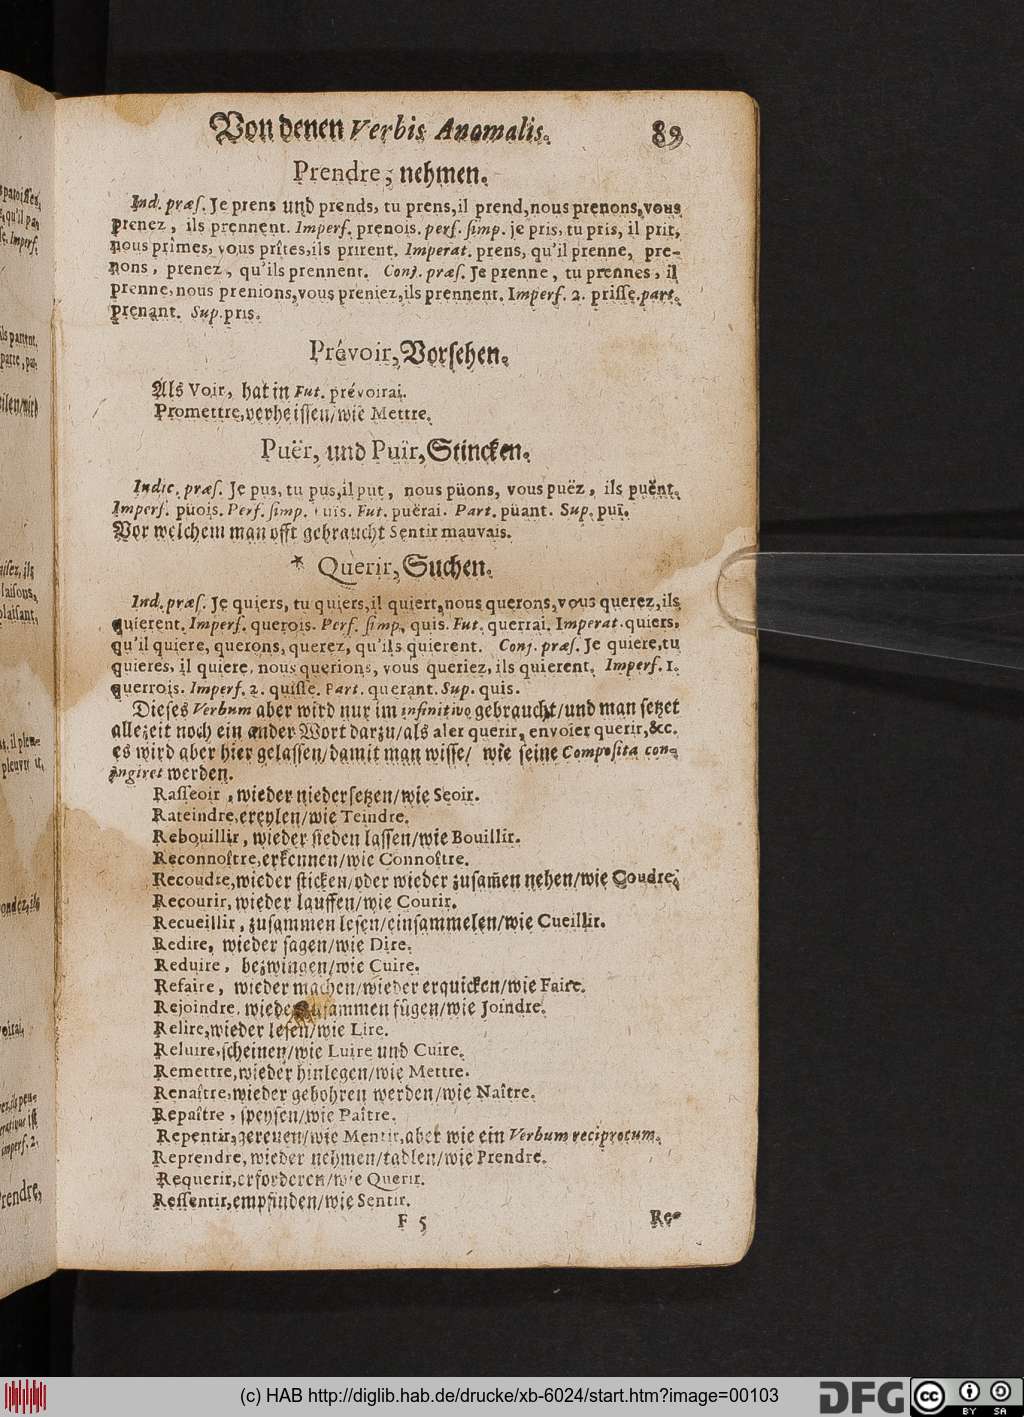 Von denen Verbis Anomalis. 89
Prendre, nehmen.
Ind. præſ. Je prens und prends, tu prens, il prend, nous prenons, vous
prenez, ils prennent. Imperf. prenois. perf. ſimp. je pris, tu pris, il prit,
nous prîmes, vous prîtes, ils prirent. Imperat. prens, qu'il prenne, pre-
nons, prenez, qu'ils prennent. Conj. præſ. Je prenne, tu prennes, il
prenne, nous prenions, vous preniez, ils prennent. Imperf. 2. priſſe. part.
prenant. Sup. pris.
Prévoir, Vorſehen.
Als Voir, hat in Fut. prévoirai.
Promettre, verheiſſen/ wie Mettre.
Puër, und Puïr, Stincken.
Indic. præſ. Je pus, tu pus, il put, nous püons, vous puëz, ils puënt.
Imperf. püois. Perf. ſimp. uis. Fut. puërai. Part. püant. Sup. puï.
Vor welchem man offt gebraucht Sentir mauvais.
* Querir, Suchen.
Ind. præſ. Je quiers, tu quiers, il quiert, nous querons, vous querez, ils
quierent. Imperf. querois. Perf. ſimp. quis. Fut. querrai. Imperat. quiers,
qu'il quiere, querons, querez, qu'ils quierent. Conj. præſ. Je quiere, tu
quieres, il quiere, nous querions, vous queriez, ils quierent. Imperf. 1.
querrois. Imperf. 2. quiſſe. Part. querant. Sup. quis.
Dieſes Verbum aber wird nur im infinitivo gebraucht/ und man ſetzet
allezeit noch ein ander Wort darzu/ als aler querir, envoier querir, &c.
es wird aber hier gelaſſen/ damit man wiſſe/ wie ſeine Compoſita con-
jngiret werden.
Raſſeoir, wieder niederſetzen/ wie Seoir.
Rateindre, ereylen/ wie Teindre.
Rebouillir, wieder ſieden laſſen/ wie Bouillir.
Reconnoître, erkennen/ wie Connoître.
Recoudre, wieder ſticken/ oder wieder zuſam̃en nehen/ wie Coudre.
Recourir, wieder lauffen/ wie Courir.
Recueillir, zuſammen leſen/ einſammelen/ wie Cueillir.
Redire, wieder ſagen/ wie Dire.
Reduire, bezwingen/ wie Cuire.
Refaire, wieder machen/ wieder erquicken/ wie Faire.
Rejoindre, wieder zuſammen fügen/ wie Joindre.
Relire, wieder leſen/ wie Lire.
Reluire, ſcheinen/ wie Luire und Cuire.
Remettre, wieder hinlegen/ wie Mettre.
Renaître, wieder gebohren werden/ wie Naître.
Repaître, ſpeyſen/ wie Paître.
Repentir, gereuen/ wie Mentir, aber wie ein Verbum reciprocum.
Reprendre, wieder nehmen/ tadlen/ wie Prendre.
Requerir, erforderen/ wie Querir.
Reſſentir, empfinden/ wie Sentir.
F 5 Re-
(c) HAB http://diglib.hab.de/drucke/xb-6024/start.htm?image=00103
DFG
cc BY SA